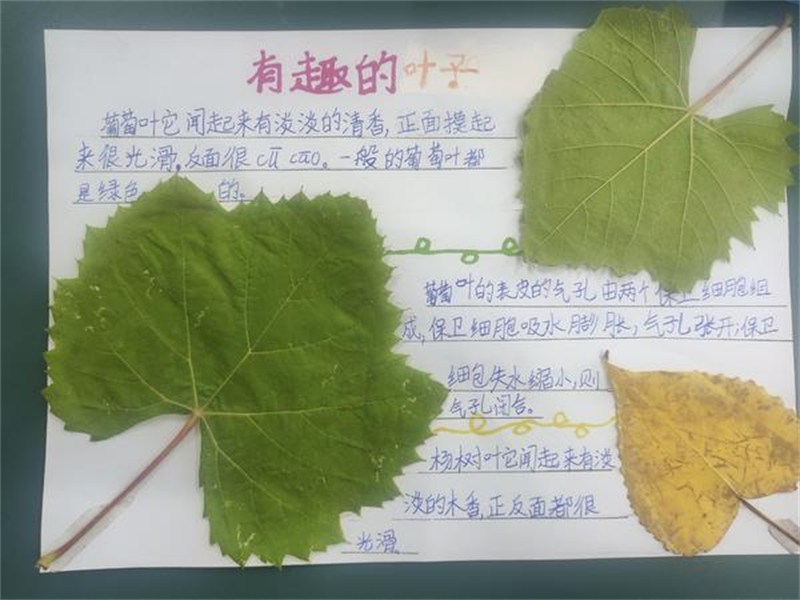 有趣的叶子
葡萄叶它闻起来有淡淡的清香,正面摸起
来很光滑,反面很cū cāo。一般的葡萄叶都
是绿色的。
葡萄叶的表皮的气孔由两个保卫细胞组
成,保卫细胞吸水膨胀,气孔张开;保卫
细包失水缩小,则
气孔闭合。
杨树叶它闻起来有淡
淡的木香,正反面都很
光滑。